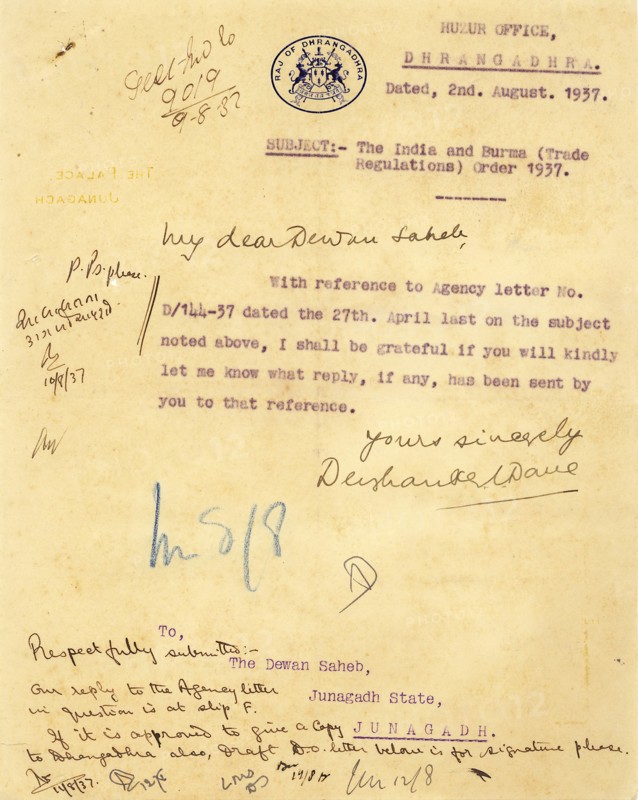 HUZUR OFFICE,
DHRANGADHRA.
Dated, 2nd. August. 1937.
RAJ OF DHRANGADHRA
9019
9-8-37
SUBJECT:- The India and Burma (Trade
Regulations) Order 1937.
THE PALACE
JUNAGADH
My dear Dewan Saheb,
With reference to Agency letter No.
D/144-37 dated the 27th. April last on the subject
noted above, I shall be grateful if you will kindly
let me know what reply, if any, has been sent by
you to that reference.
P. Ps. please.
10/8/37
Yours sincerely
8/8
To,
The Dewan Saheb,
Junagadh State,
JUNAGADH.
Respectfully submitted:-
Our reply to the Agency letter
in question is at slip F.
If it is approved to give a copy
to Dhrangadhra also, draft D.O. letter below is for signature please.
11/8/37.
12/8